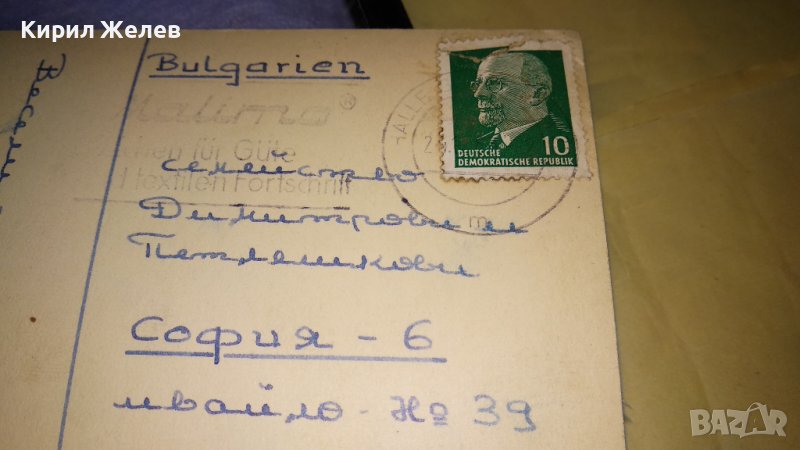 Кирил Желев
Bulgarien
Malimo®
für Güte
textilen Fortschritt
10
DEUTSCHE
DEMOKRATISCHE REPUBLIK
Весели
семейство
Димитрови и
Петлешкови
СОФИЯ - 6
ивайло - № 39
BAZAR